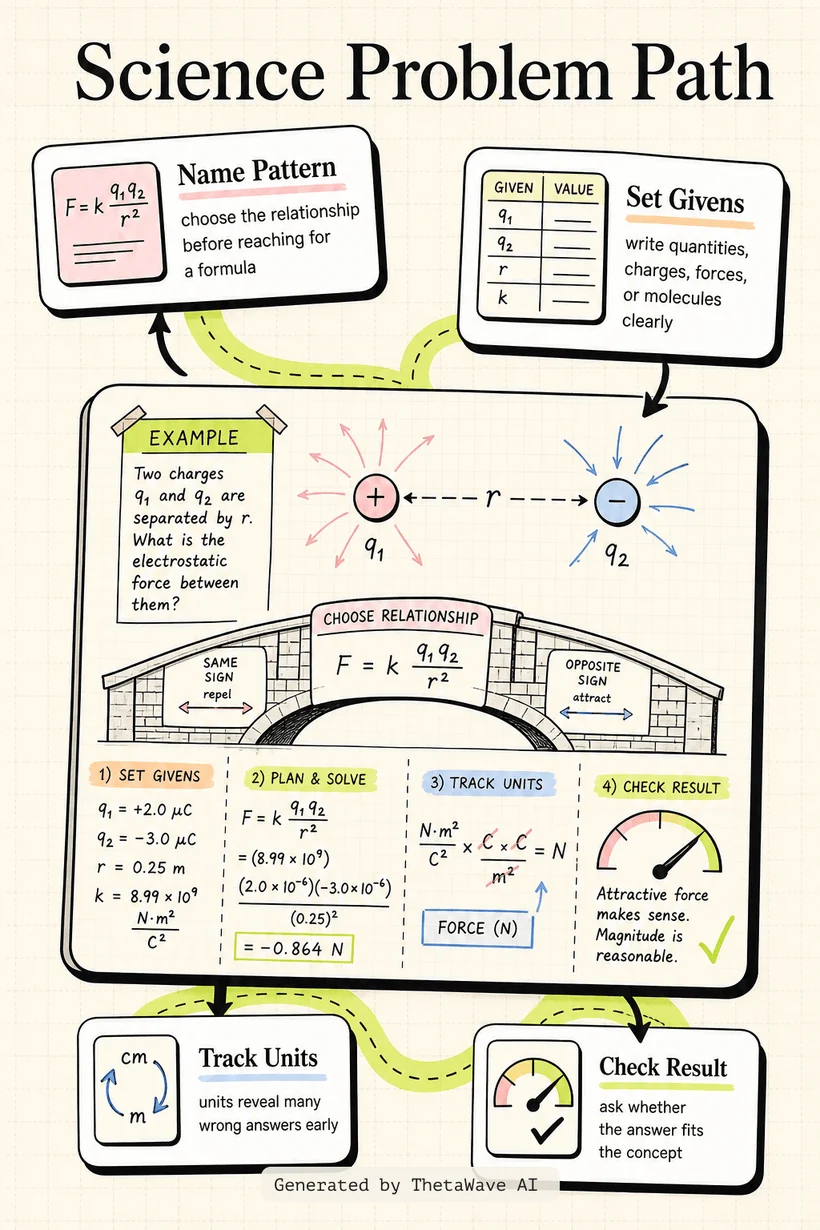 Science Problem Path
Name Pattern
F = k q₁q₂ / r²
choose the relationship
before reaching for
a formula
GIVEN VALUE
q₁
q₂
r
k
Set Givens
write quantities,
charges, forces,
or molecules
clearly
EXAMPLE
Two charges
q₁ and q₂ are
separated by r.
What is the
electrostatic
force between
them?
+
r
−
q₁
q₂
CHOOSE RELATIONSHIP
F = k q₁q₂ / r²
SAME
SIGN
repel
OPPOSITE
SIGN
attract
1) SET GIVENS
q₁ = +2.0 μC
q₂ = −3.0 μC
r = 0.25 m
k = 8.99 × 10⁹
N·m²
C²
2) PLAN & SOLVE
F = k q₁q₂ / r²
= (8.99 × 10⁹)
(2.0 × 10⁻⁶)(−3.0×10⁻⁶)
(0.25)²
= −0.864 N
3) TRACK UNITS
N·m² / C² × C × C / m² = N
FORCE (N)
4) CHECK RESULT
Attractive force
makes sense.
Magnitude is
reasonable.
cm
m
Track Units
units reveal many
wrong answers early
Check Result
ask whether
the answer fits
the concept
Generated by ThetaWave AI